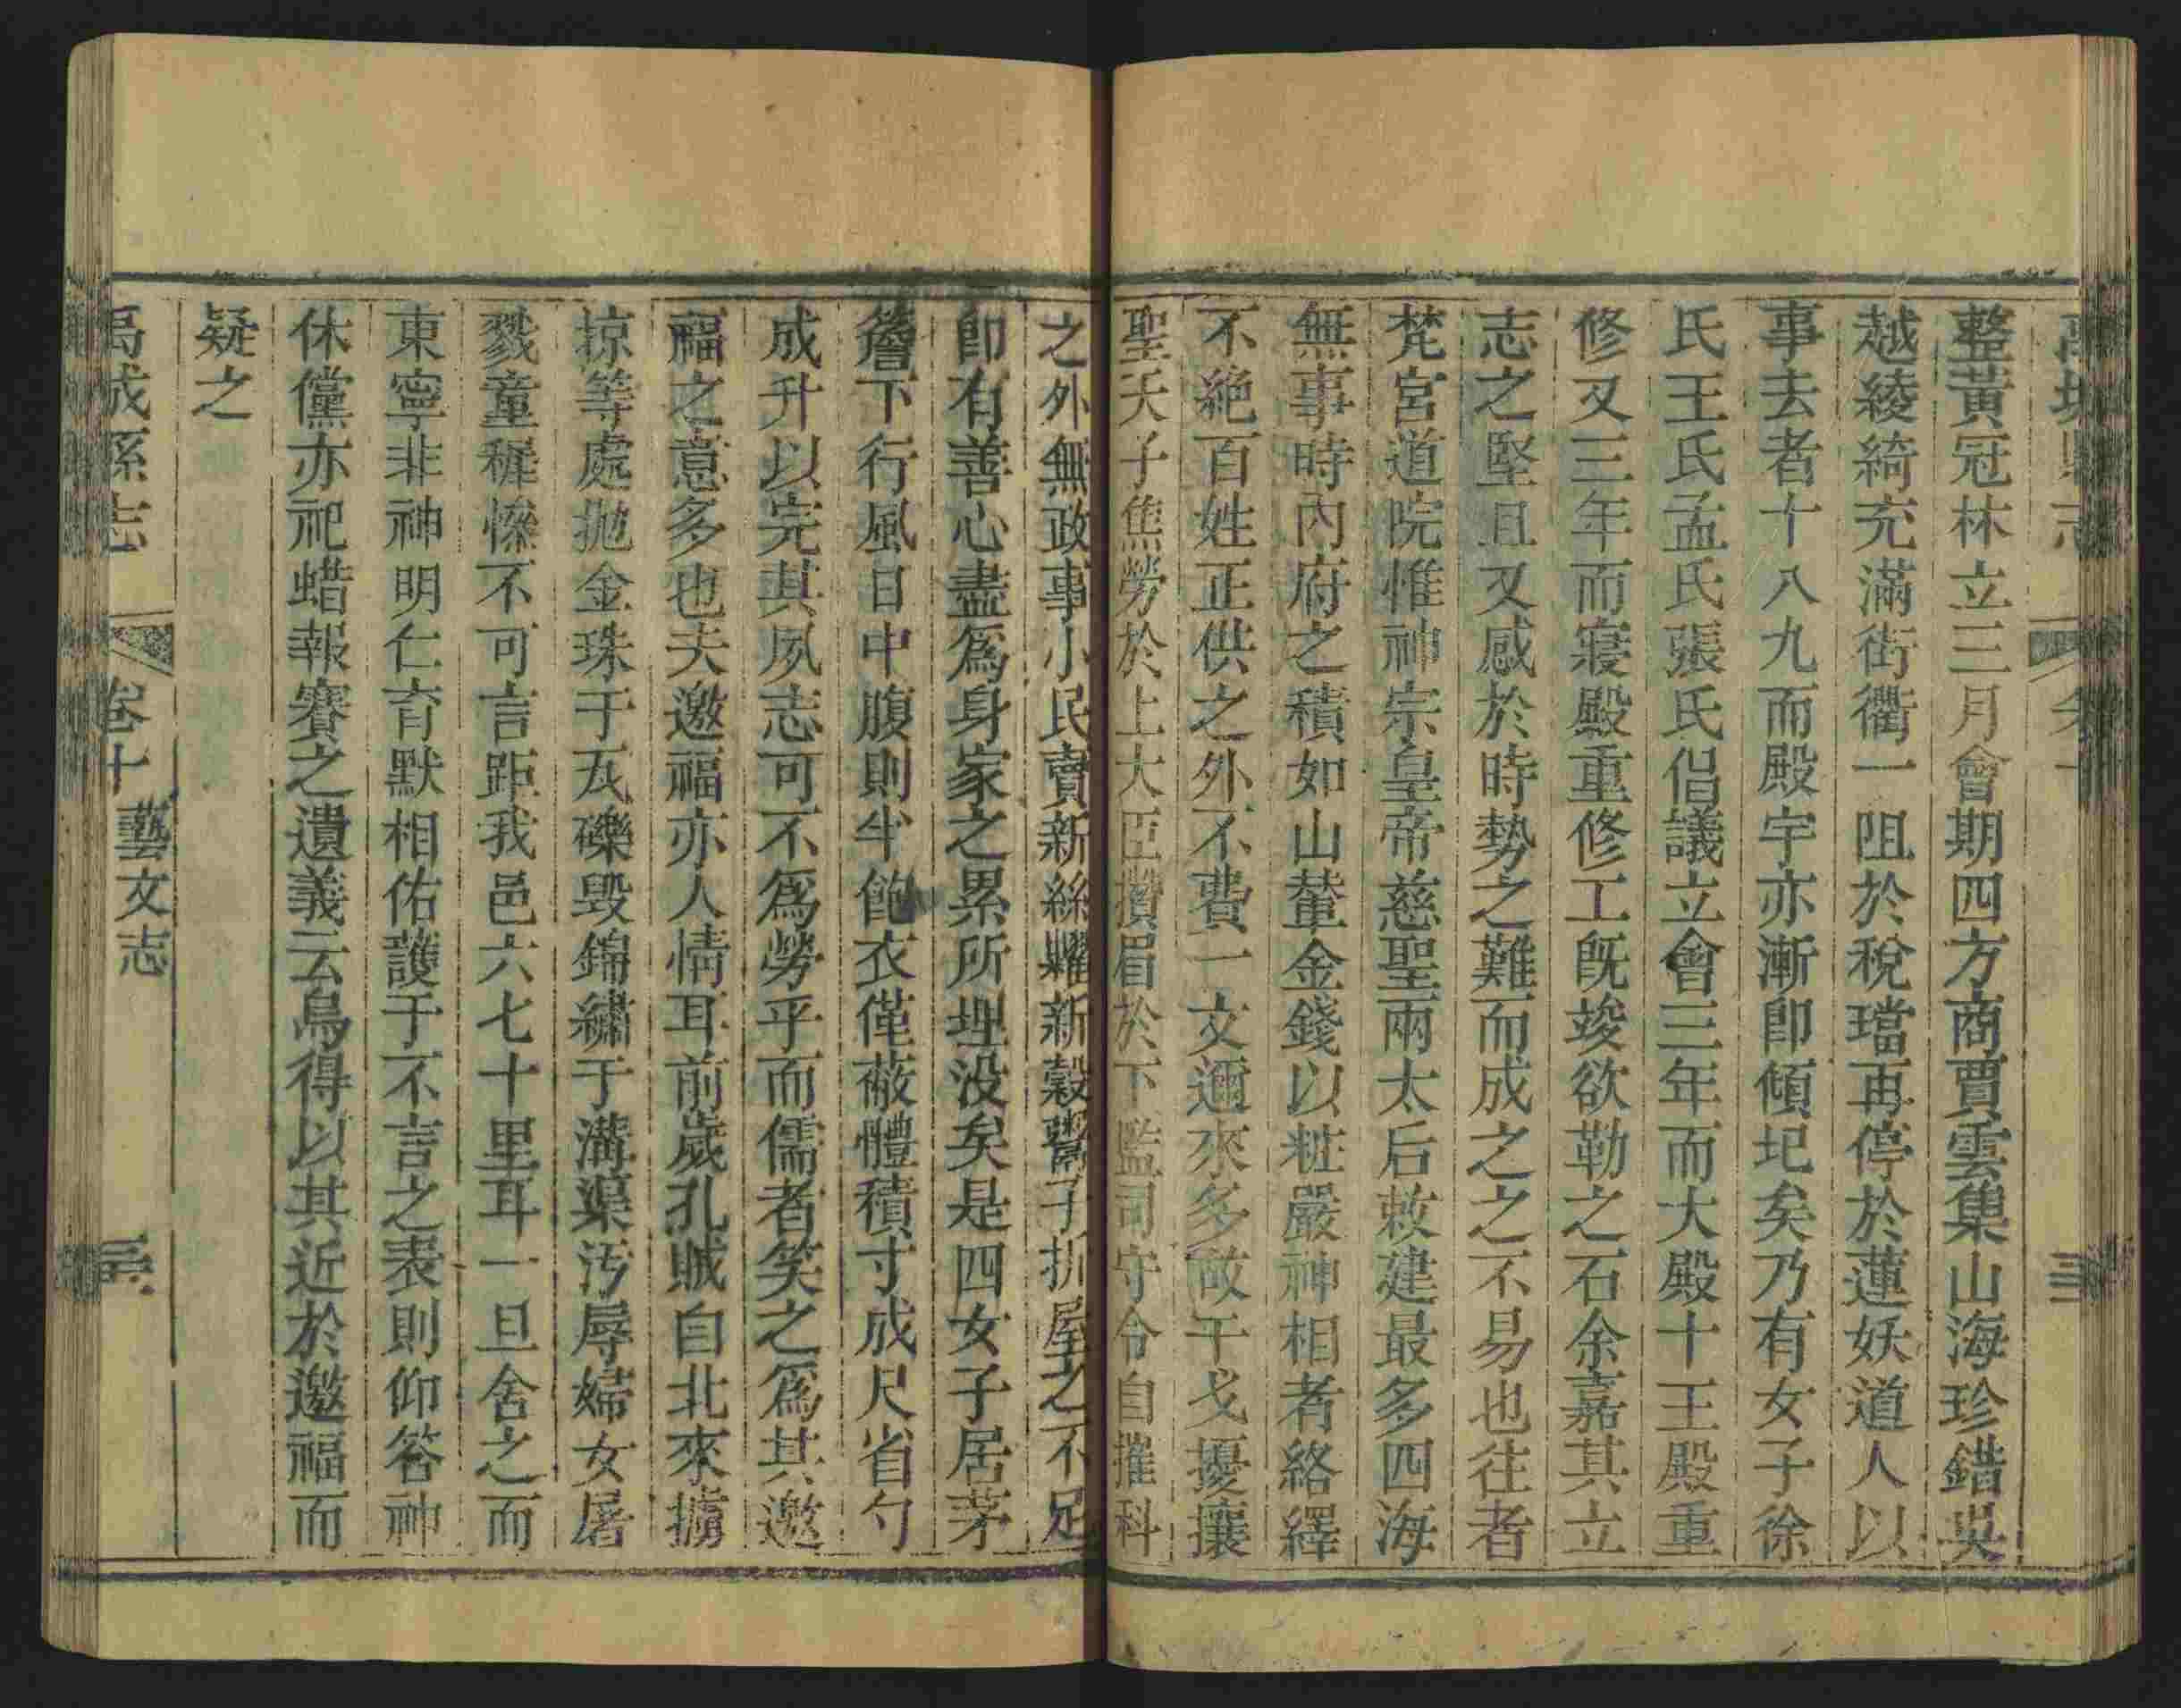 整黃冠林立三月會期四方商賈雲集山海珍錯吳
越綾綺充滿街衢一阻於稅璫再停於蓮妖道人以
事去者十八九而殿宇亦漸卽傾圮矣乃有女子徐
氏王氏孟氏張氏倡議立會三年而大殿十王殿重
修又三年而寢殿重修工旣竣欲勒之石余嘉其立
志之堅且又感於時勢之難而成之之不易也往者
梵宮道院惟神宗皇帝慈聖兩太后敕建最多四海
無事時內府之積如山輦金錢以粧嚴神相者絡繹
不絶百姓正供之外不費一文邇來多故干戈擾攘
聖天子焦勞於上大臣攢眉於下監司守令自摧科
之外無政事小民賣新絲糶新穀鬻子折屋之不足
卽有善心盡爲身家之累所埋没矣是四女子居茅
簷下行風日中腹則半飽衣僅蔽體積寸成尺省勺
成升以完其夙志可不爲勞乎而儒者笑之爲其邀
福之意多也夫邀福亦人情耳前歲孔賊自北來擄
掠等處抛金珠于瓦礫毁錦繡于溝渠汚辱婦女屠
戮童穉慘不可言距我邑六七十里耳一旦舍之而
東寧非神明仁育默相佑護于不言之表則仰答神
休儻亦祀蜡報賽之遺義云烏得以其近於邀福而
疑之
禹城縣志 卷十 藝文志